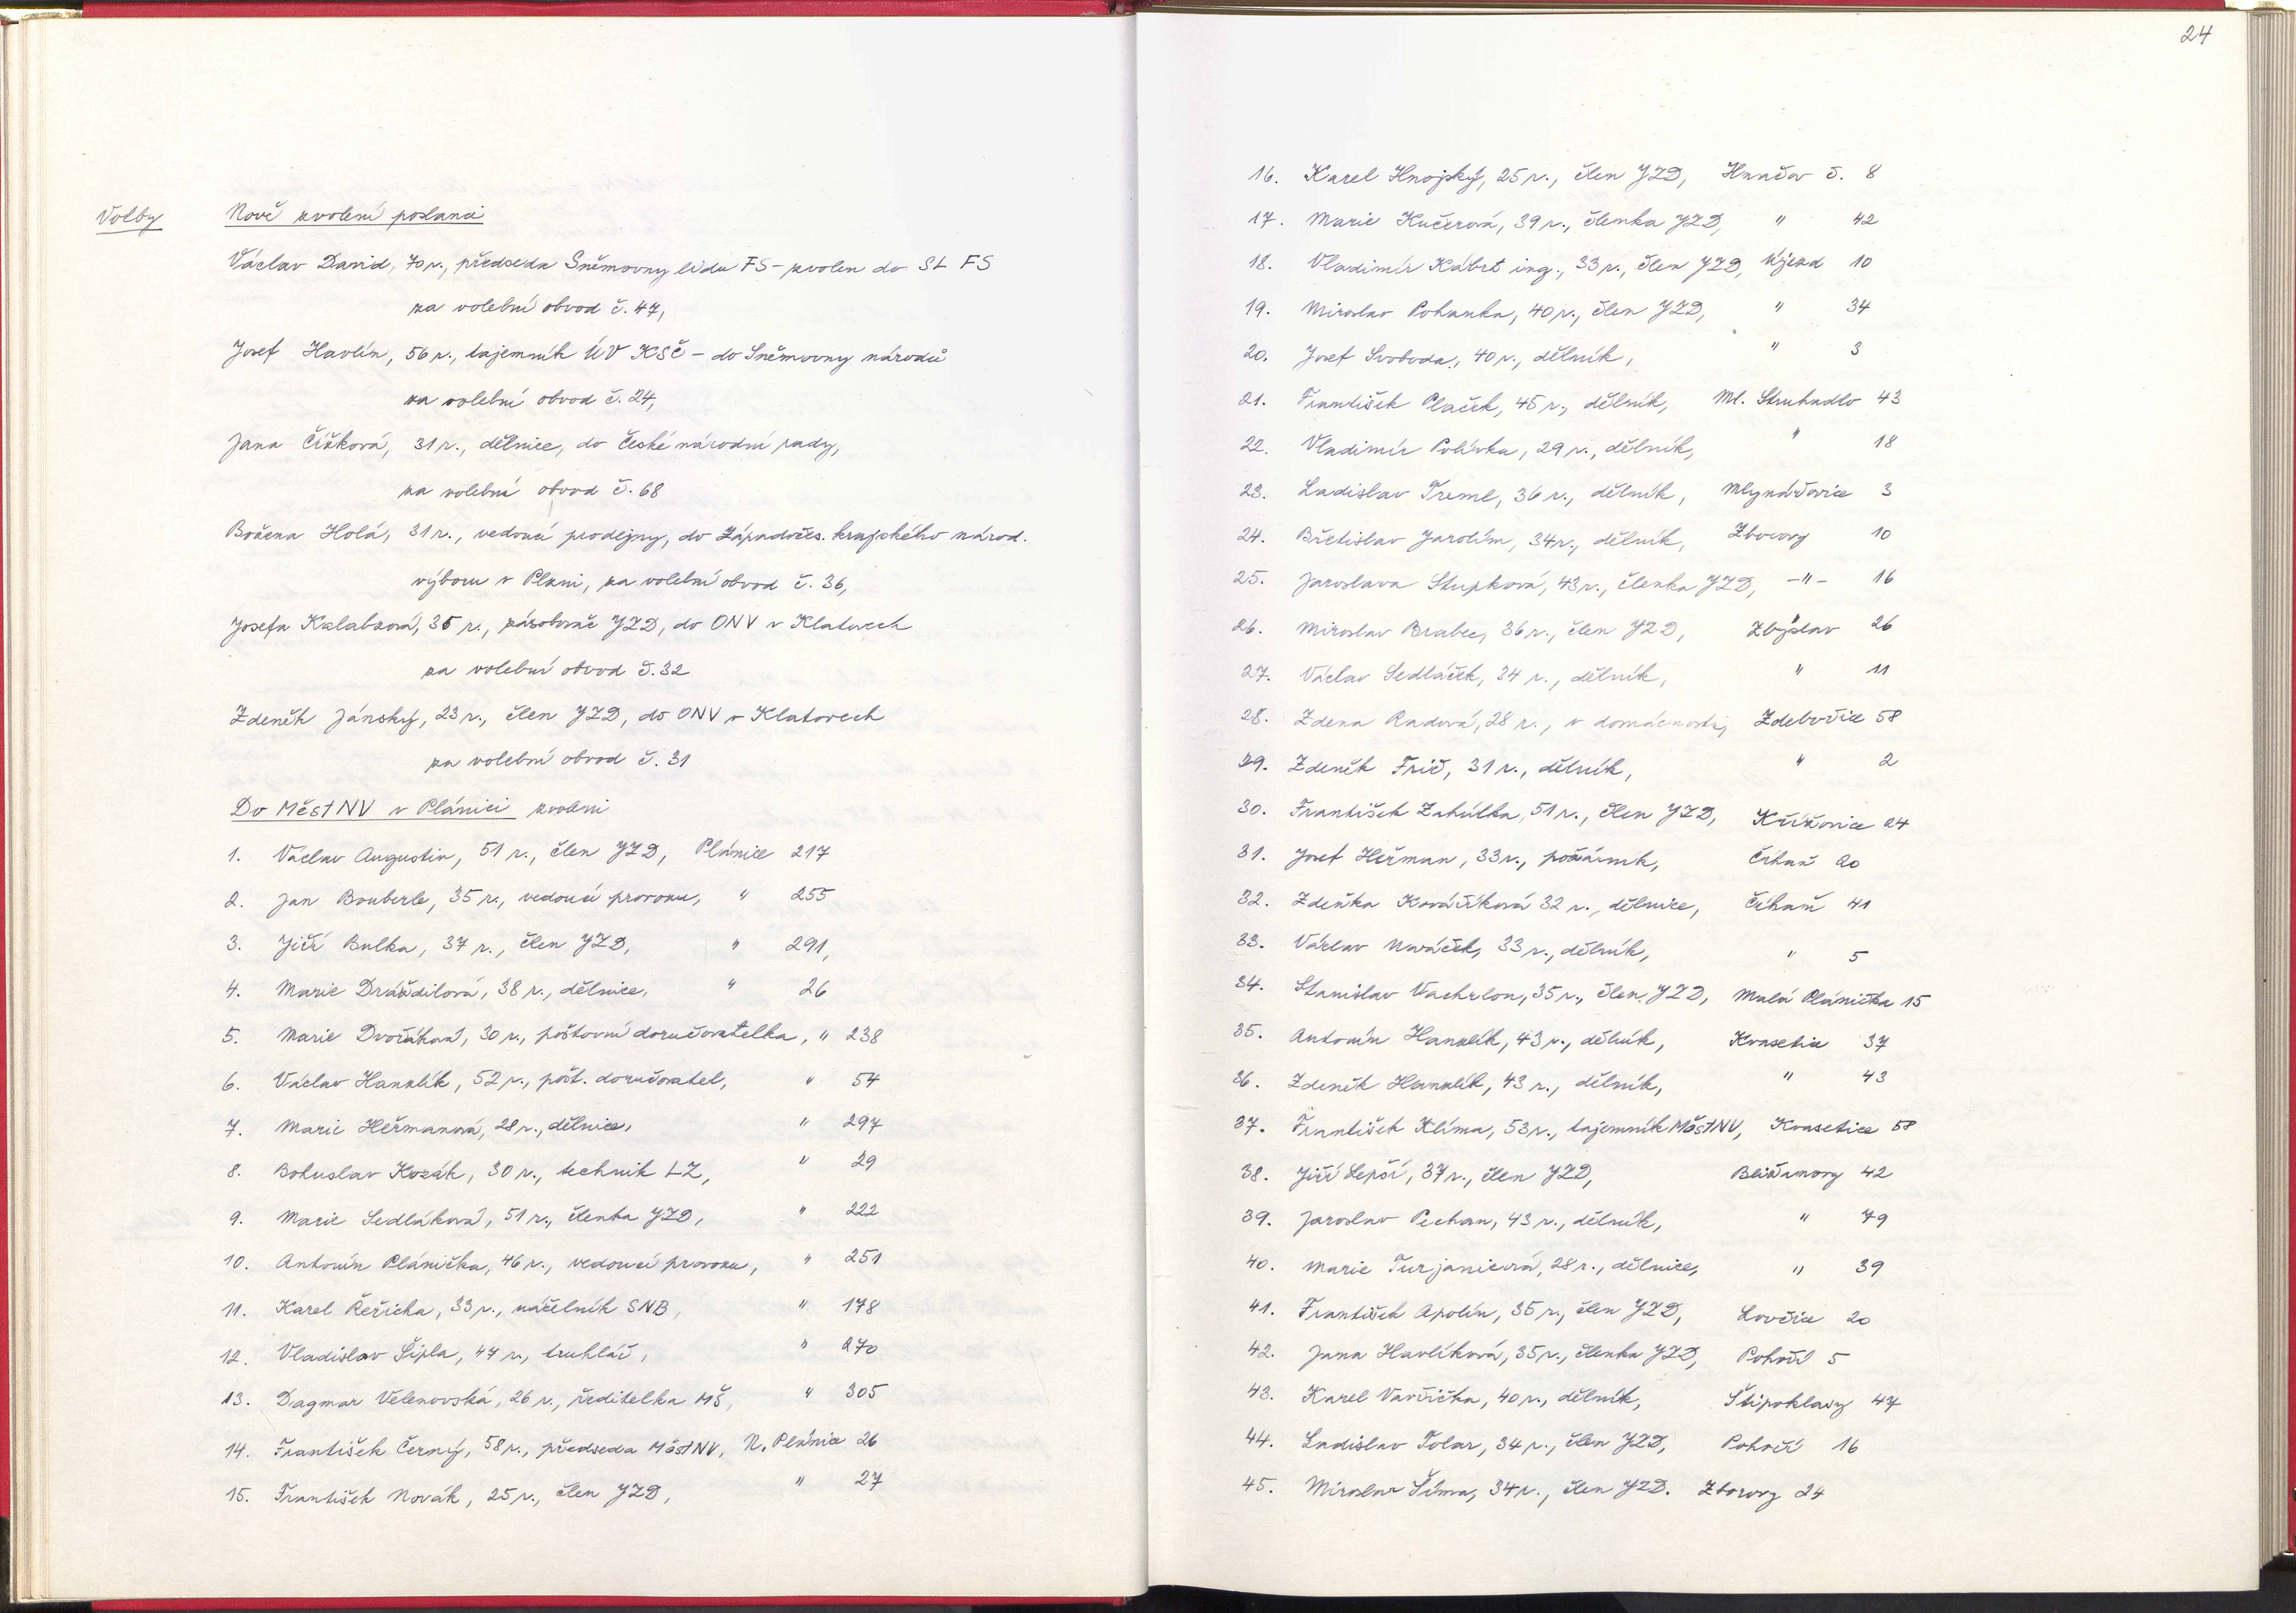 Volby
Nově zvolení poslanci
Václav David, 70 r., předseda Sněmovny lidu FS - zvolen do SL FS
za volební obvod č. 47,
Josef Havlín, 56 r., tajemník ÚV KSČ - do Sněmovny národů
za volební obvod č. 24,
Jana Čížková, 31 r., dělnice, do České národní rady,
za volební obvod č. 68
Božena Holá, 31 r., vedoucí prodejny, do Západočes. krajského národ.
výboru v Plzni, za volební obvod č. 36,
Josefa Kalabzová, 35 r., zásobovač JZD, do ONV v Klatovech
za volební obvod č. 32
Zdeněk Jánský, 23 r., člen JZD, do ONV v Klatovech
za volební obvod č. 31
Do MěstNV v Plánici zvoleni
1. Václav Augustin, 51 r., člen JZD, Plánice 217
2. Jan Bouberle, 35 r., vedoucí provozu, " 255
3. Jiří Bulka, 37 r., člen JZD, " 291,
4. Marie Dráždilová, 38 r., dělnice, " 26
5. Marie Dvořáková, 30 r., poštovní doručovatelka, " 238
6. Václav Hanzlík, 52 r., pošt. doručovatel, " 54
7. Marie Heřmanová, 28 r., dělnice, " 297
8. Bohuslav Kozák, 30 r., technik LZ, " 29
9. Marie Sedláková, 51 r., členka JZD, " 222
10. Antonín Plánička, 46 r., vedoucí provozu, " 251
11. Karel Řeřicha, 33 r., náčelník SNB, " 178
12. Vladislav Šipla, 47 r., truhlář, " 270
13. Dagmar Velenovská, 26 r., ředitelka MŠ, " 305
14. František Černý, 58 r., předseda MěstNV, N. Plánice 26
15. František Novák, 25 r., člen JZD, " 27
24
16. Karel Hnojský, 25 r., člen JZD, Hnačov č. 8
17. Marie Kučerová, 39 r., členka JZD, " 42
18. Vladimír Kábrt ing., 33 r., člen JZD, Újezd 10
19. Miroslav Pohanka, 40 r., člen JZD, " 34
20. Josef Svoboda, 40 r., dělník, " 3
21. František Plaček, 45 r., dělník, Ml. Struhadlo 43
22. Vladimír Polívka, 29 r., dělník, " 18
23. Ladislav Treml, 36 r., dělník, Mlynářovice 3
24. Břetislav Jarolím, 34 r., dělník, Zborovy 10
25. Jaroslava Stupková, 43 r., členka JZD, -"- 16
26. Miroslav Brabec, 36 r., člen JZD, Zbyslav 26
27. Václav Sedláček, 34 r., dělník, " 11
28. Zdena Radová, 28 r., v domácnosti, Zdebořice 58
29. Zdeněk Frič, 31 r., dělník, " 2
30. František Zahálka, 51 r., člen JZD, Křížovice 24
31. Josef Heřman, 33 r., požárník, Číhaň 20
32. Zdeňka Kovaříková 32 r., dělnice, Číhaň 41
33. Václav Nováček, 33 r., dělník, " 5
34. Stanislav Vachrlon, 35 r., člen JZD, Malá Plánička 15
35. Antonín Hanzlík, 43 r., dělník, Kvasetice 37
36. Zdeněk Hanzlík, 43 r., dělník, " 43
37. František Klíma, 53 r., tajemník MěstNV, Kvasetice 58
38. Jiří Lepší, 37 r., člen JZD, Bližanovy 42
39. Jaroslav Pechan, 43 r., dělník, " 79
40. Marie Turjanicová, 28 r., dělnice, " 39
41. František Apolín, 35 r., člen JZD, Lovčice 20
42. Jana Havlíková, 35 r., členka JZD, Pohoří 5
43. Karel Vavřička, 40 r., dělník, Štipoklasy 47
44. Ladislav Tolar, 34 r., člen JZD, Pohoří 16
45. Miroslav Šíma, 34 r., člen JZD. Zborovy 24